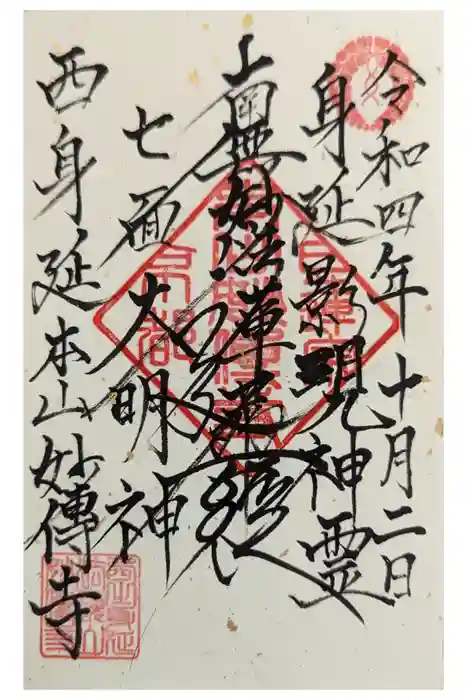 令和四年十月二日
身延影現神霊
南無妙法蓮華経
七面大明神
西身延本山妙傳寺
京都